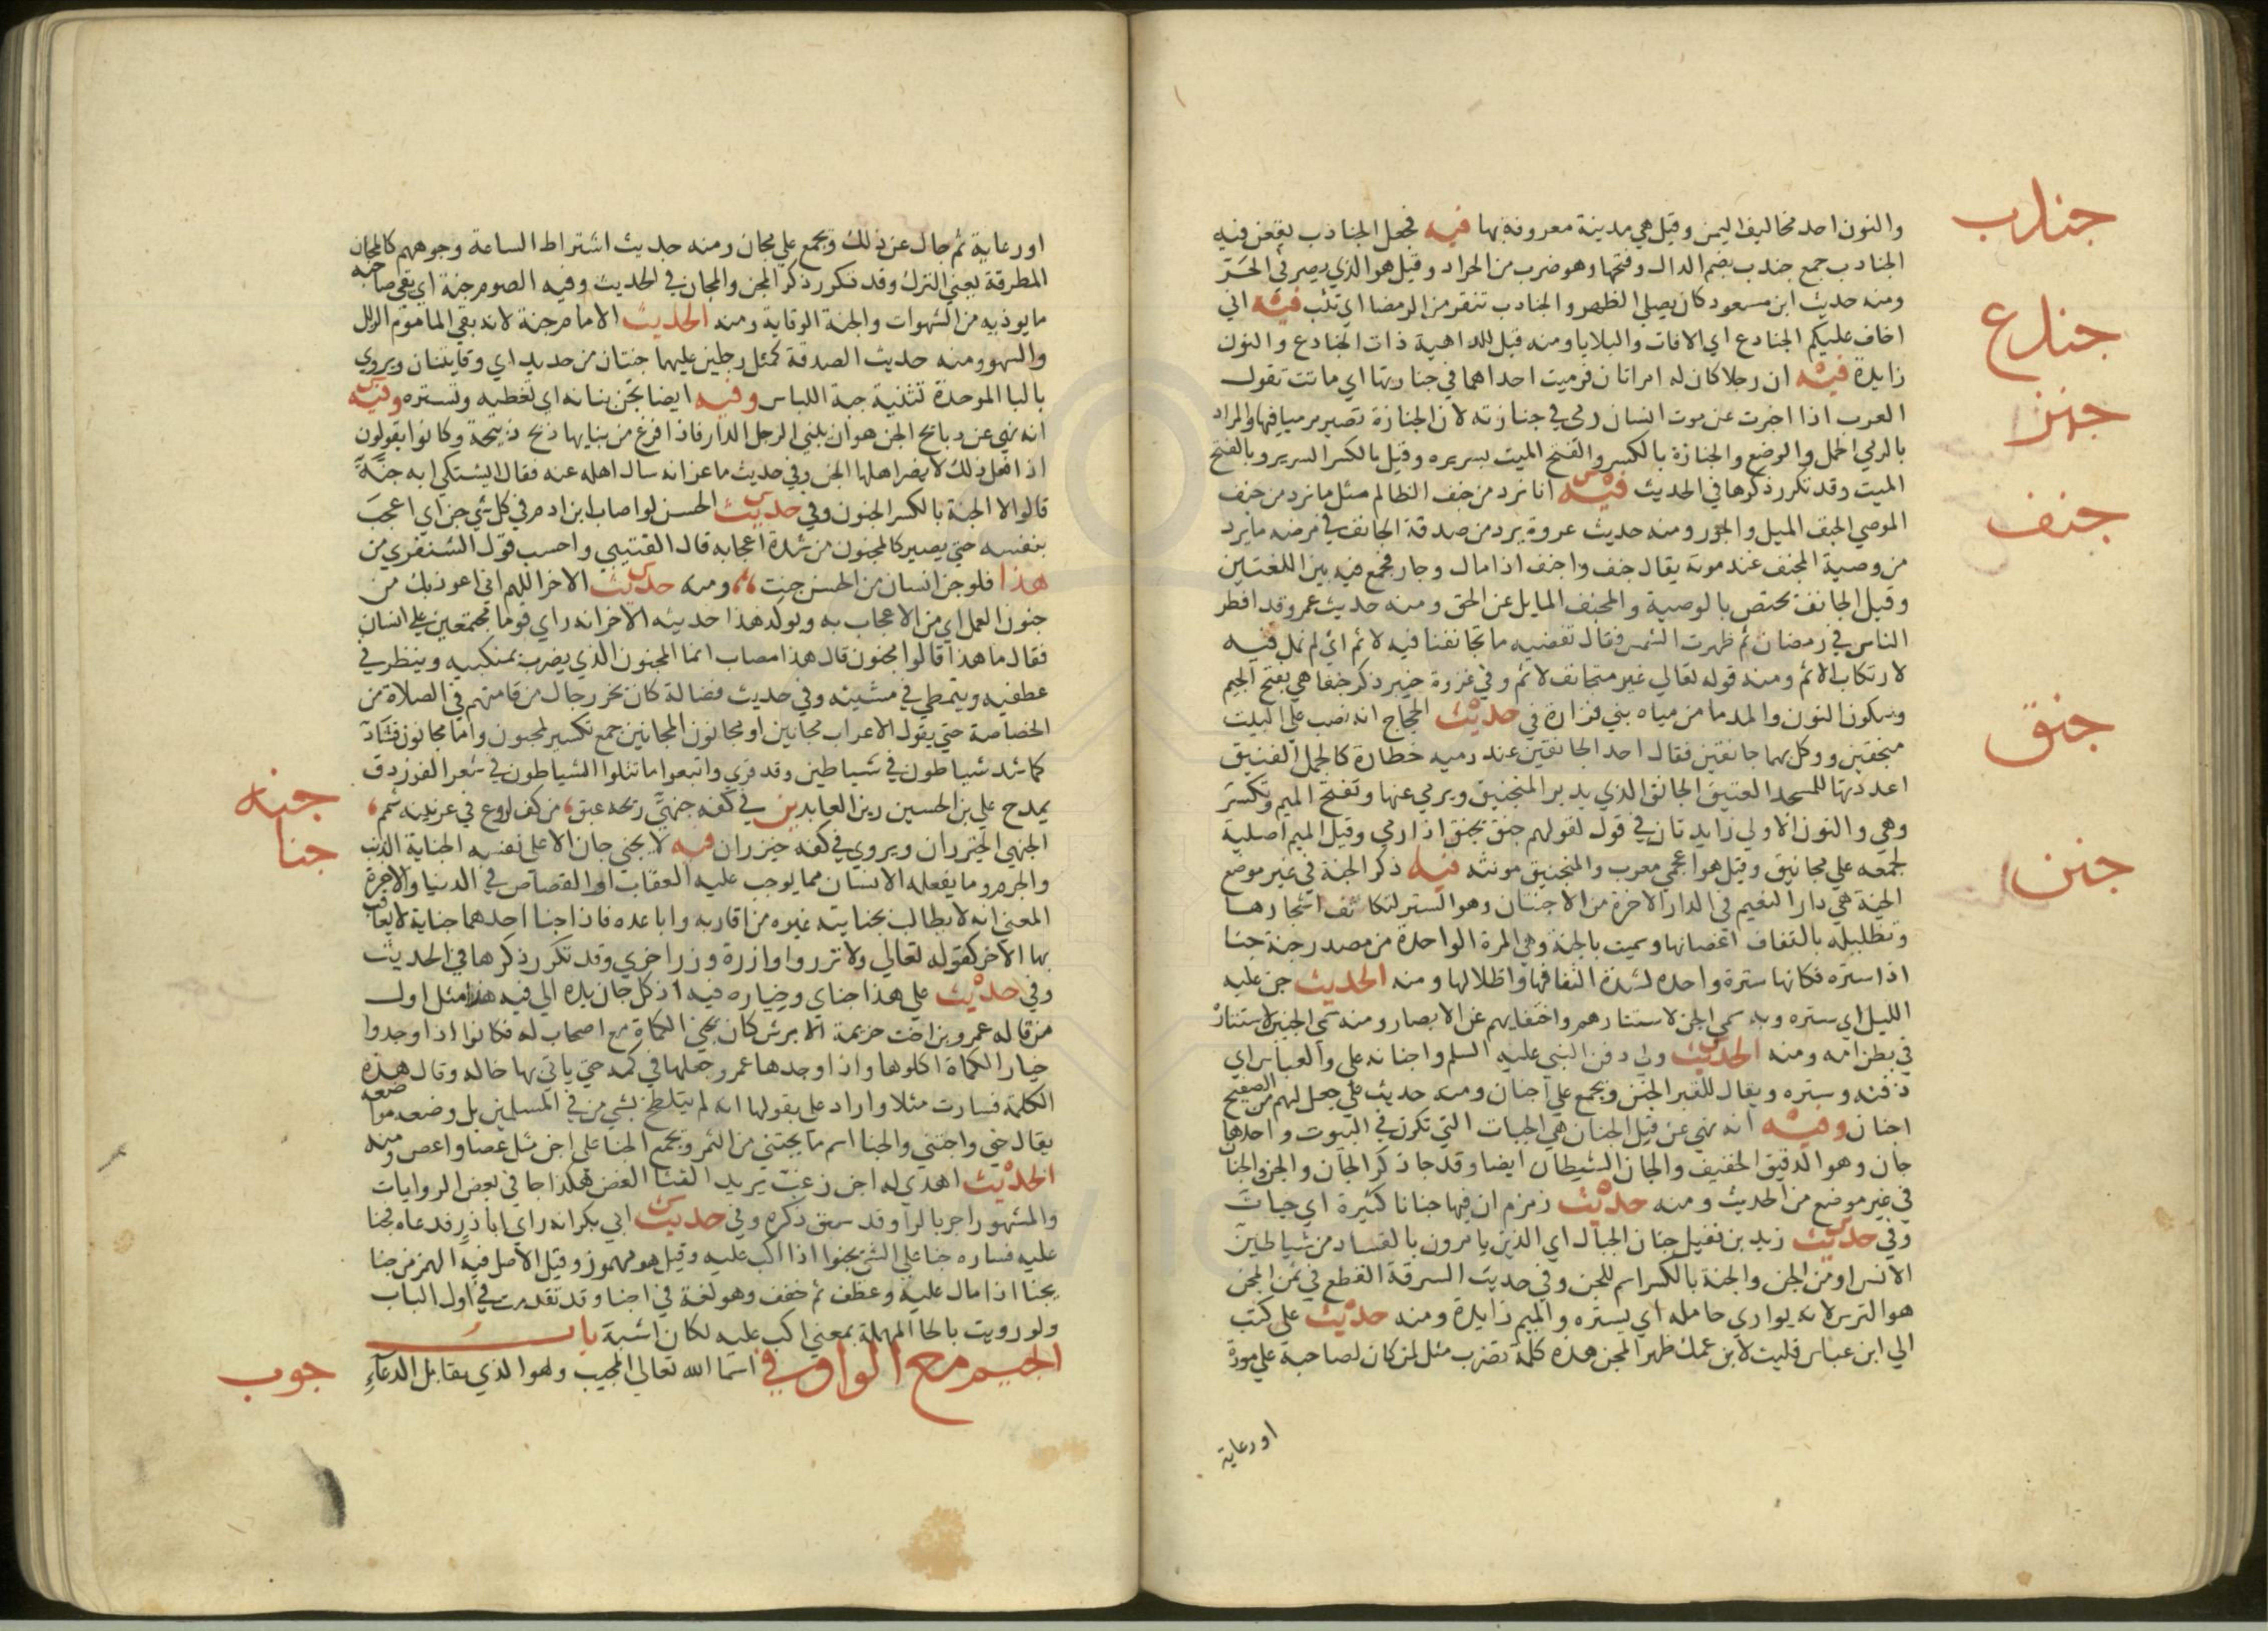 والنون احد مخاليف اليمن وقيل هي مدينة معروفة بها فيه فجعل الجنادب يقعن فيه
جندب
الجنادب جمع جندب بضم الدال وفتحها وهو ضرب من الجراد وقيل هو الذي يصر في الحر
ومنه حديث ابن مسعود كان يصلي الظهر والجنادب تنقز من الرمضا اي تثب فيه اني
جندع
اخاف عليكم الجنادع اي الافات والبلايا ومنه قيل للداهية ذات الجنادع والنون
زايدة فيه ان رجلا كان له امراتان فرميت احداهما في جنازتها اي ماتت تقول
جنز
العرب اذا اخبرت عن موت انسان رمي في جنازته لان الجنازة تصير مرميا فيها والمراد
بالرمي الحمل والوضع والجنازة بالكسر والفتح الميت بسريره وقيل بالكسر السرير وبالفتح
الميت وقد تكرر ذكرها في الحديث فيه انا نرد من جنف الظالم مثل ما نرد من جنف
جنف
الموصي الجنف الميل والجور ومنه حديث عروة يرد من صدقة الجانف في مرضه ما يرد
من وصية المجنف عند موته يقال جنف واجنف اذا مال وجار فجمع فيه بين اللغتين
وقيل الجانف يختص بالوصية والمجنف المايل عن الحق ومنه حديث عمر وقد افطر
الناس في رمضان ثم ظهرت الشمس فقال نقضيه ما تجانفنا فيه لاثم اي لم نمل فيه
لارتكاب الاثم ومنه قوله تعالي غير متجانف لاثم وفي غزوة خيبر ذكر جنفا هي بفتح الجيم
وسكون النون والمد ما من مياه بني فزارة في حديث الحجاج انه نصب علي البيت
جنق
منجنقين ووكل بهما جانقين فقال احد الجانقين عند رميه خطارة كالجمل الفنيق
اعددتها للمسجد العتيق الجانق الذي يدبر المنجنيق ويرمي عنها وتفتح الميم وتكسر
وهي والنون الاولي زايدتان في قول لقولهم جنق يجنق اذا رمي وقيل الميم اصلية
لجمعه علي مجانيق وقيل هو اعجمي معرب والمنجنيق مونثه فيه ذكر الجنة في غير موضع
جنن
الجنة هي دار النعيم في الدار الاخرة من الاجتنان وهو الستر لتكاثف اشجارها
وتظليله بالتفاف اغصانها وسميت بالجنة وهي المرة الواحدة من مصدر جنة جنا
اذا ستره فكانها سترة واحده لشدة التفافها واظلالها ومنه الحديث جن عليه
الليل اي ستره وبه سمي الجن لاستتارهم واختفايهم عن الابصار ومنه سمي الجنين لاستتاره
في بطن امه ومنه الحديث ولي دفن النبي عليه السلم واجنانه علي والعباس اي
دفنه وستره ويقال للقبر الجنن ويجمع علي اجنان ومنه حديث علي جعل لهم من الصفيح
اجنان وفيه انه نهي عن قتل الجنان هي الحيات التي تكون في البيوت واحدها
جان وهو الدقيق الخفيف والجان الشيطان ايضا وقد جا ذكر الجان والجن والجنان
في غير موضع من الحديث ومنه حديث زمزم ان فيها جنانا كثيرة اي حيات
وفي حديث زيد بن نفيل جنان الجبال اي الذين يامرون بالفساد من شياطين
الانس او من الجن والجنة بالكسر اسم للجن وفي حديث السرقة القطع في ثمن المجن
هو الترس لانه يواري حامله اي يستره والميم زايدة ومنه حديث علي كتب
الي ابن عباس قلبت لابن عمك ظهر المجن هذه كلمة تضرب مثل لمن كان لصاحبه علي مودة
اورعاية
اورعاية ثم حال عن ذلك ويجمع علي مجان ومنه حديث اشتراط الساعة وجوههم كالمجان
المطرقة يعني الترك وقد تكرر ذكر المجن والمجان في الحديث وفيه الصوم جنة اي يقي صاحبه
ما يوذيه من الشهوات والجنة الوقاية ومنه الحديث الامام جنة لانه يقي الماموم الزلل
والسهو ومنه حديث الصدقة كمثل رجلين عليهما جنتان من حديد اي وقايتان ويروي
بالبا الموحدة تثنية جبة اللباس وفيه ايضا تجن بنانه اي تغطيه وتستره وفيه
انه نهي عن ذبايح الجن هو ان يبني الرجل الدار فاذا فرغ من بنايها ذبح ذبيحة وكانوا يقولون
اذا فعل ذلك لا يضر اهلها الجن وفي حديث ماعز انه سال اهله عنه فقال ايشتكي ابه جنة
قالوا لا الجنة بالكسر الجنون وفي حديث الحسن لو اصاب ابن ادم في كل شي جن اي اعجب
بنفسه حتي يصير كالمجنون من شدة اعجابه قال القتيبي واحسب قول الشنفري من
هذا فلو جن انسان من الحسن جنت ومنه حديث الاخر اللهم اني اعوذ بك من
جنون العمل اي من الاعجاب به ويولد هذا حديثه الاخر انه راي قوما مجتمعين علي انسان
فقال ما هذا قالوا مجنون قال هذا مصاب انما المجنون الذي يضرب بمنكبيه وينظر في
عطفيه ويتمطي في مشيته وفي حديث فضالة كان يخر رجال من قامتهم في الصلاة من
الخصاصة حتي يقول الاعراب مجانين او مجانون المجانين جمع تكسير لمجنون واما مجانون فشاذ
كما شذ شياطون في شياطين وقد قري واتبعوا ما تتلوا الشياطون في شعر الفرزدق
جنه
يمدح علي بن الحسين زين العابدين في كفه جنهي ريحه عبق من كف اروع في عرنينه شمم
جنا
الجنهي الخيزران ويروي في كفه خيزران فيه لا يجني جان الا علي نفسه الجناية الذنب
والجرم وما يفعله الانسان مما يوجب عليه العقاب او القصاص في الدنيا والاخرة
المعني انه لا يطالب بجنايته غيره من اقاربه واباعده فاذا جنا احدهما جناية لا يعاقب
بها الاخر كقوله تعالي ولا تزر وازرة وزر اخري وقد تكرر ذكرها في الحديث
وفي حديث علي هذا جناي وخياره فيه اذ كل جان يده الي فيه هذا مثل اول
من قاله عمرو بن اخت خزيمة الابرش كان يجني الكماة مع اصحاب له فكانوا اذا وجدوا
خيار الكماة اكلوها واذا وجدها عمرو جعلها في كمه حتي ياتي بها خاله وقال هذه
الكلمة فسارت مثلا واراد علي بقولها انه لم يتلطخ بشي من في المسلمين بل وضعه مواضعه
يقال جني واجتني والجنا اسم ما يجتني من الثمر ويجمع الجنا علي اجن مثل عصا واعص ومنه
الحديث اهدي له اجن زغب يريد القثا الغض هكذا جا في بعض الروايات
والمشهور اجر بالرا وقد سبق ذكره وفي حديث ابي بكر انه راي اباذر فدعاه فجنا
عليه فساره جنا علي الشي يجنوا اذا اكب عليه وقيل هو مهموز وقيل الاصل فيه الهمز من جنا
يجنا اذا مال عليه وعطف ثم خفف وهو لغة في اجنا وقد تقدمت في اول الباب
ولو رويت بالحا المهملة بمعني اكب عليه لكان اشبة باب
الجيم مع الواو في اسما الله تعالي المجيب وهو الذي يقابل الدعاء
جوب